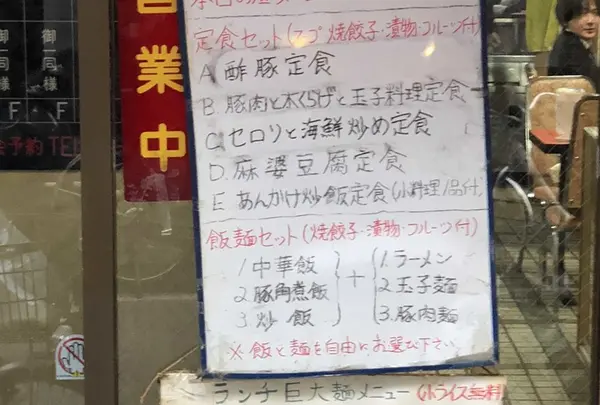 定食セット(スープ 焼餃子・漬物・フルーツ付)
A. 酢豚定食
B. 豚肉と木くらげと玉子料理定食
C. セロリと海鮮炒め定食
D. 麻婆豆腐定食
E. あんかけ炒飯定食(小料理1品付)
飯麺セット(焼餃子・漬物・フルーツ付)
1. 中華飯
2. 豚角煮飯
3. 炒飯
+
1. ラーメン
2. 玉子麺
3. 豚肉麺
※飯と麺を自由にお選び下さい
ランチ巨大麺メニュー(小ライス無料)
業中
御同様
御同様
F
F
予約 TEL